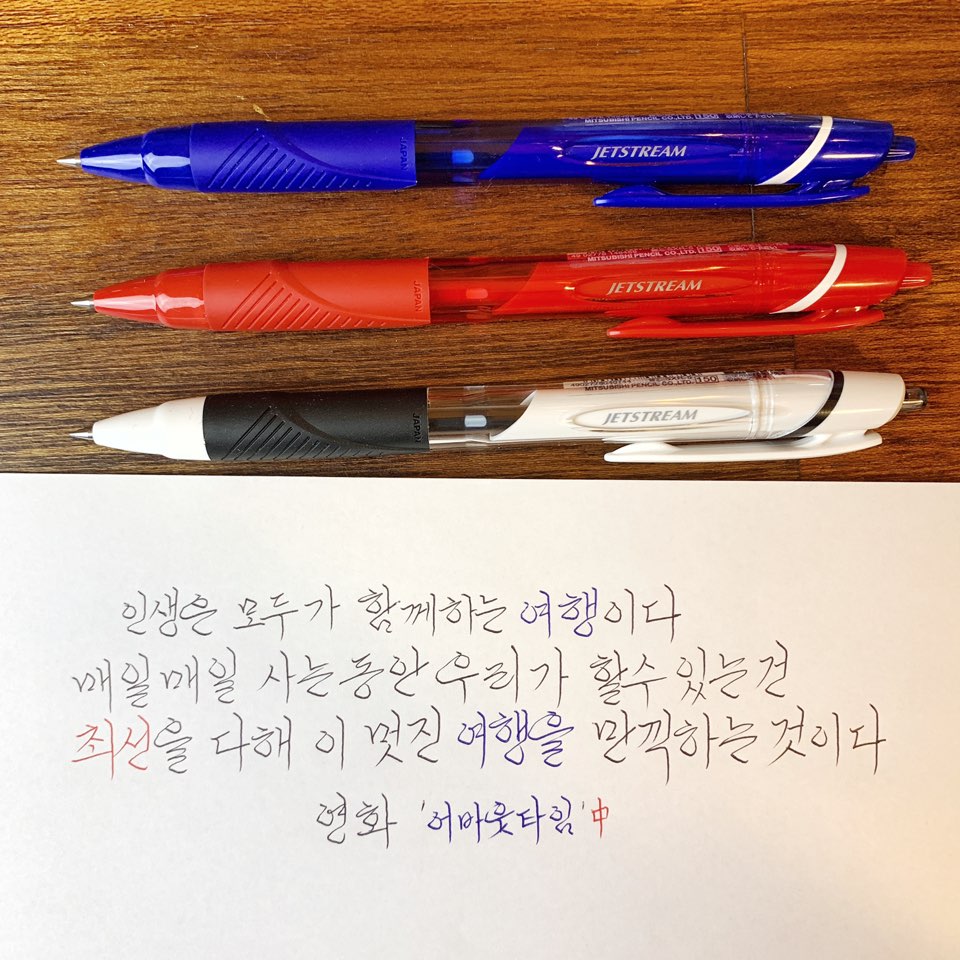 MITSUBISHI PENCIL CO.,LTD.
JAPAN
JETSTREAM
MITSUBISHI PENCIL CO.,LTD. [150]
JAPAN
JETSTREAM
MITSUBISHI PENCIL CO.,LTD. [150]
JAPAN
JETSTREAM
인생은 모두가 함께하는 여행이다
매일매일 사는동안 우리가 할수있는건
최선을 다해 이 멋진 여행을 만끽하는것이다
영화 '어바웃타임' 中